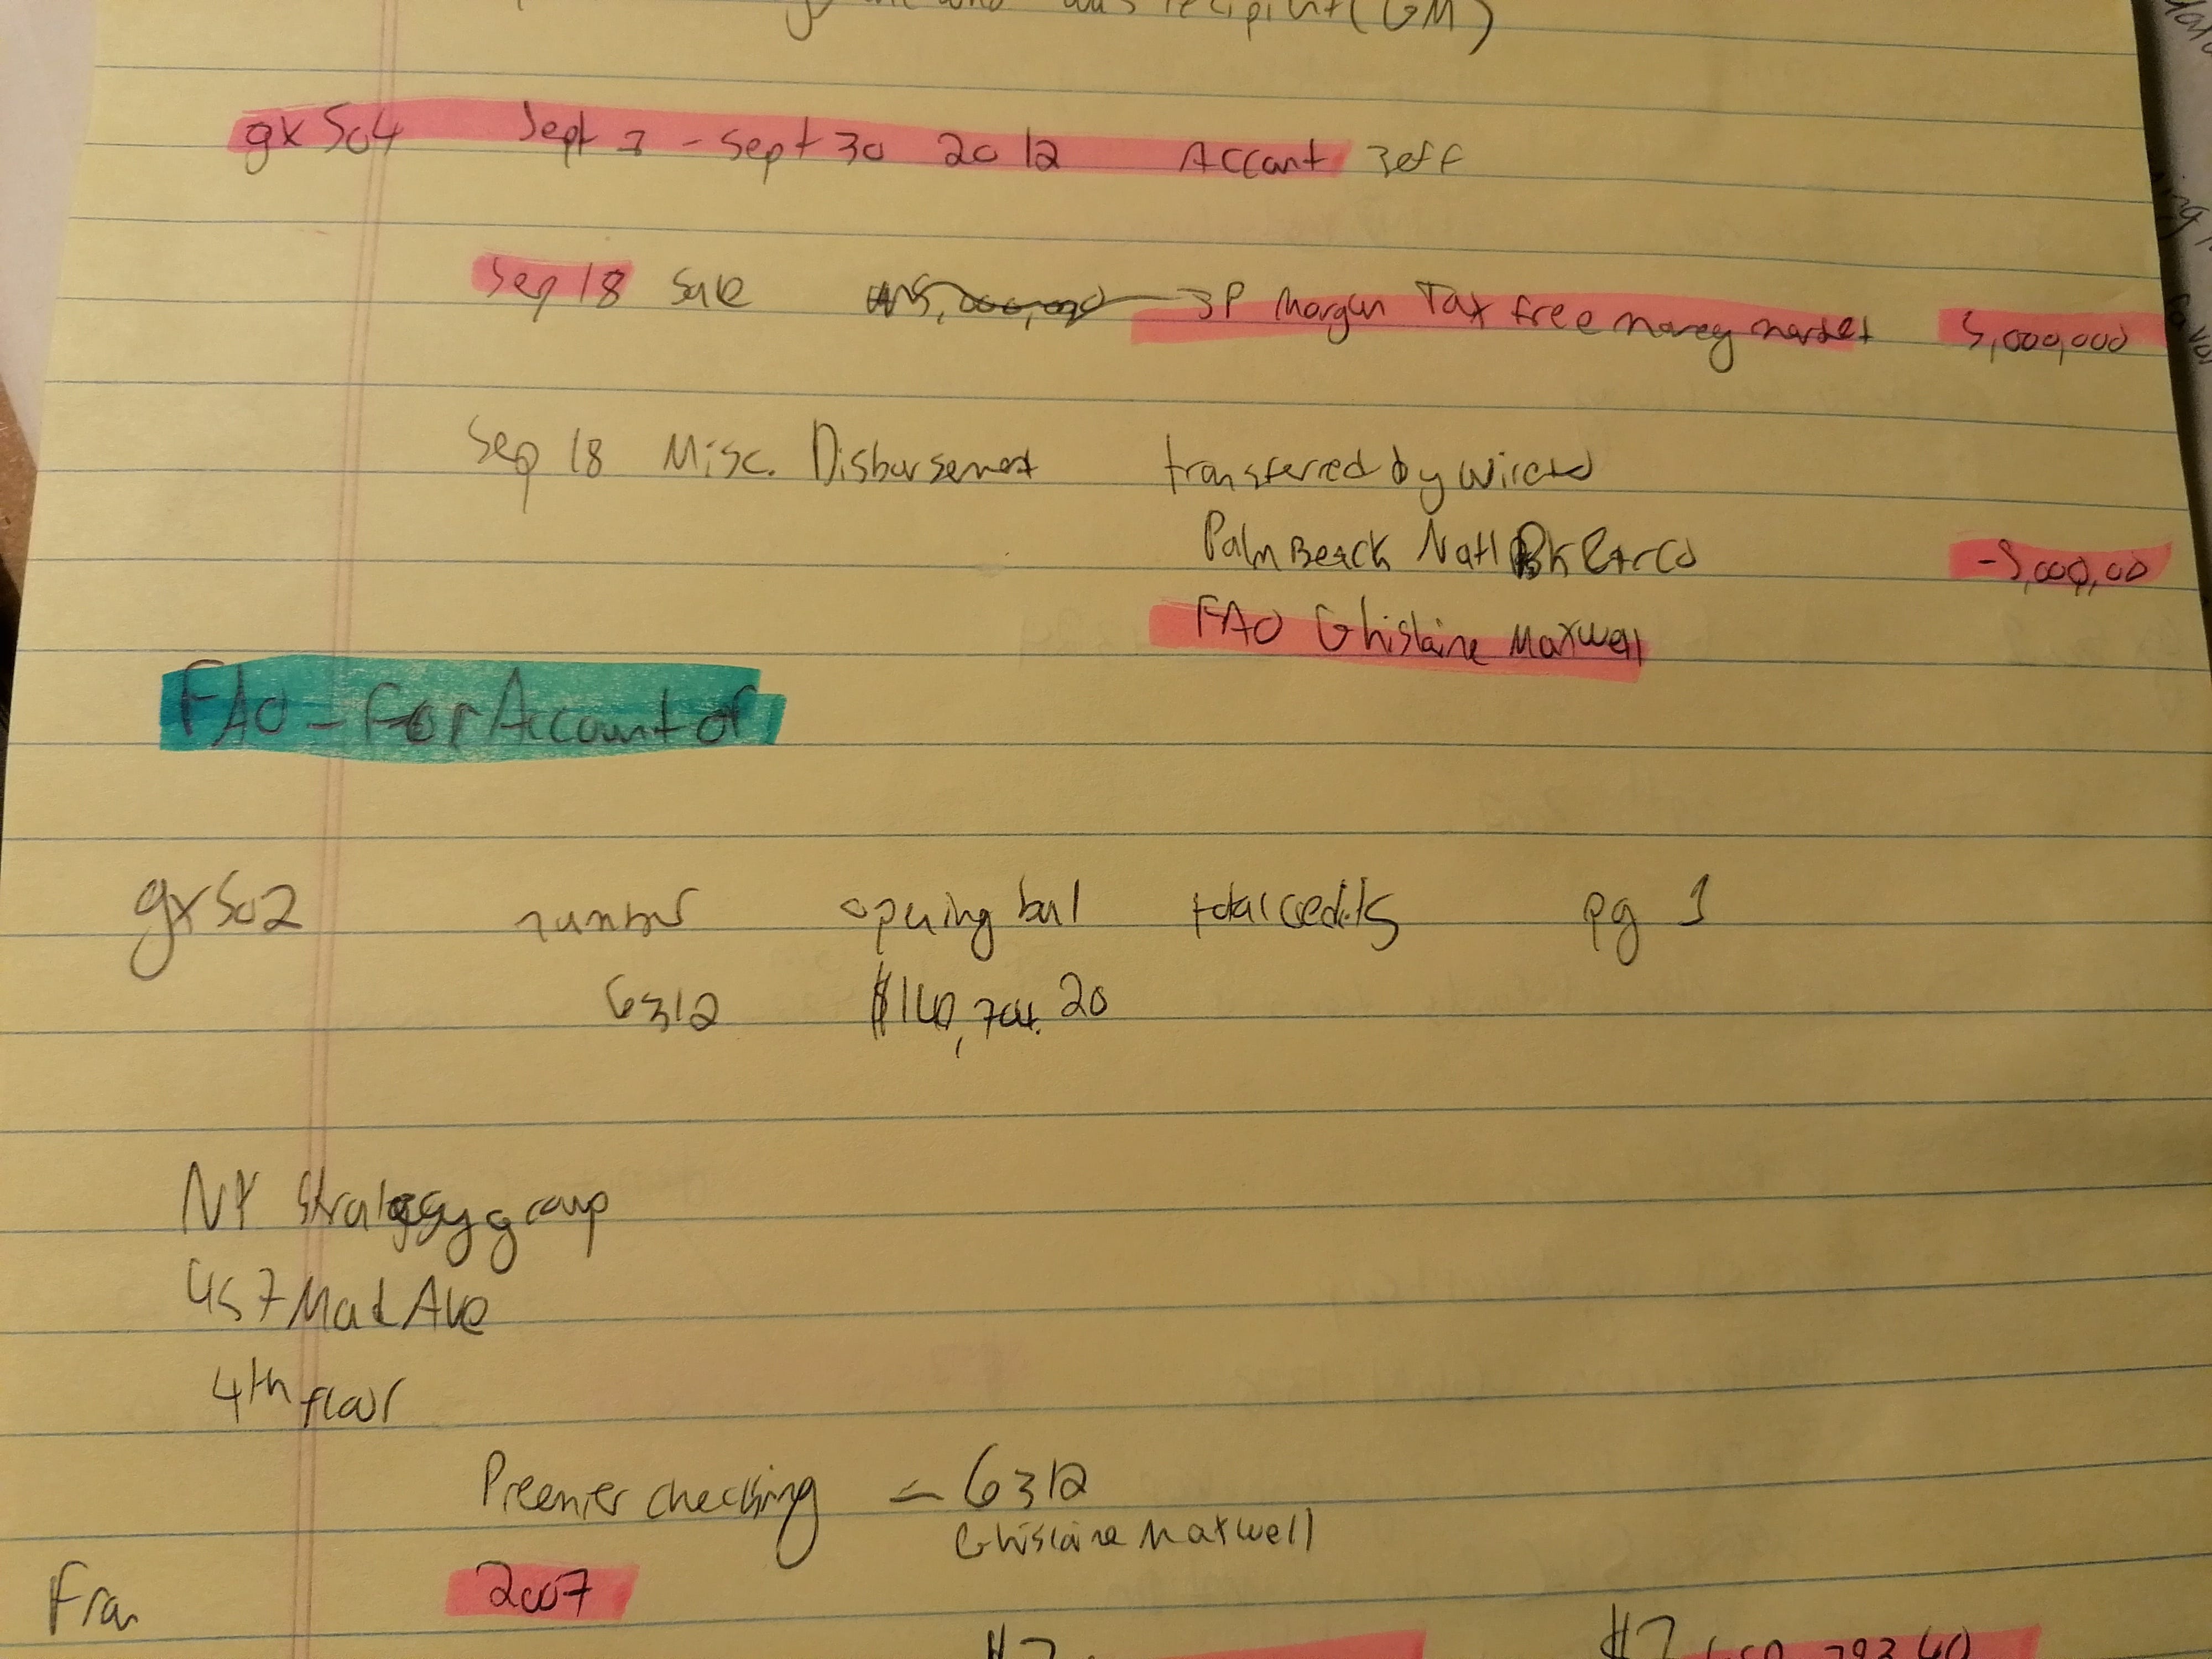 was recipint (GM)
gx 504 Sept 1 - Sept 30 2012 Account Jeff
Sep 18 Sale 5,000,000 JP Morgan Tax free money market 5,000,000
Sep 18 Misc. Disbursement transferred by wire to
Palm Beack Natl Bk &tr Co -5,000,00
FAO Ghislaine Maxwell
FAO - For Account of
gx 502 number opening bal total credits pg 1
6312
NY Strategy group
457 Mad Ave
4th floor
Preemier checking - 6312
Ghislaine Maxwell
Fra 2007